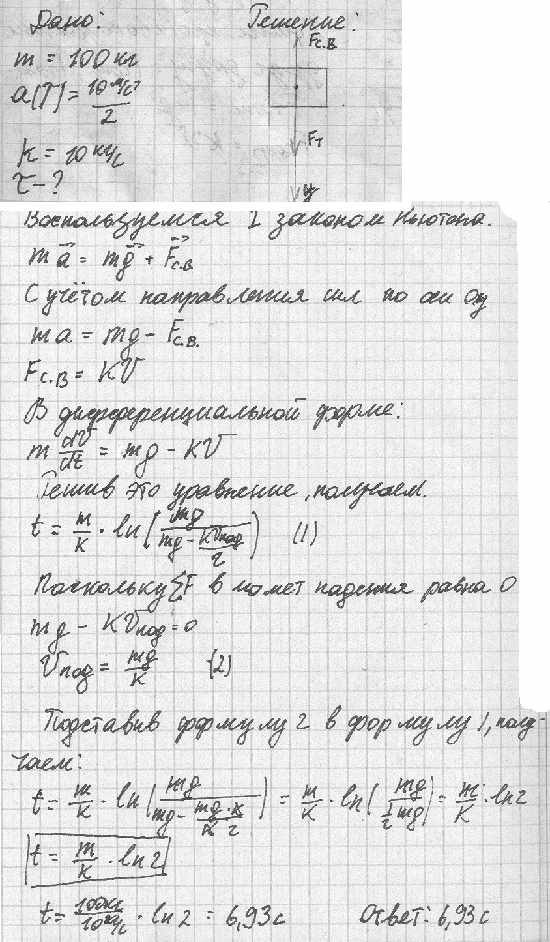 Дано: Решение:
m = 100 кг Fс.в
a(τ) = 10 м/с² / 2
k = 10 кг/с Fт
τ - ? y
Воспользуемся I законом Ньютона.
ma⃗ = mg⃗ + F⃗с.в
С учётом направления сил по оси Oy
ma = mg - Fс.в.
Fс.в = KV
В дифференциальной форме:
m dV/dt = mg - KV
Решив это уравнение, получаем.
t = m/k · ln(mg / (mg - KVпад/2)) (1)
Поскольку ΣF в момет падения равна 0
mg - KVпад = 0
Vпад = mg/K (2)
Подставив формулу 2 в формулу 1, полу-
чаем:
t = m/k · ln(mg / (mg - mg·k/(k·2))) = m/k · ln(mg / (1/2 mg)) = m/k · ln2
t = m/k · ln2
t = 100кг / 10кг/с · ln2 = 6,93 с Ответ: 6,93 с